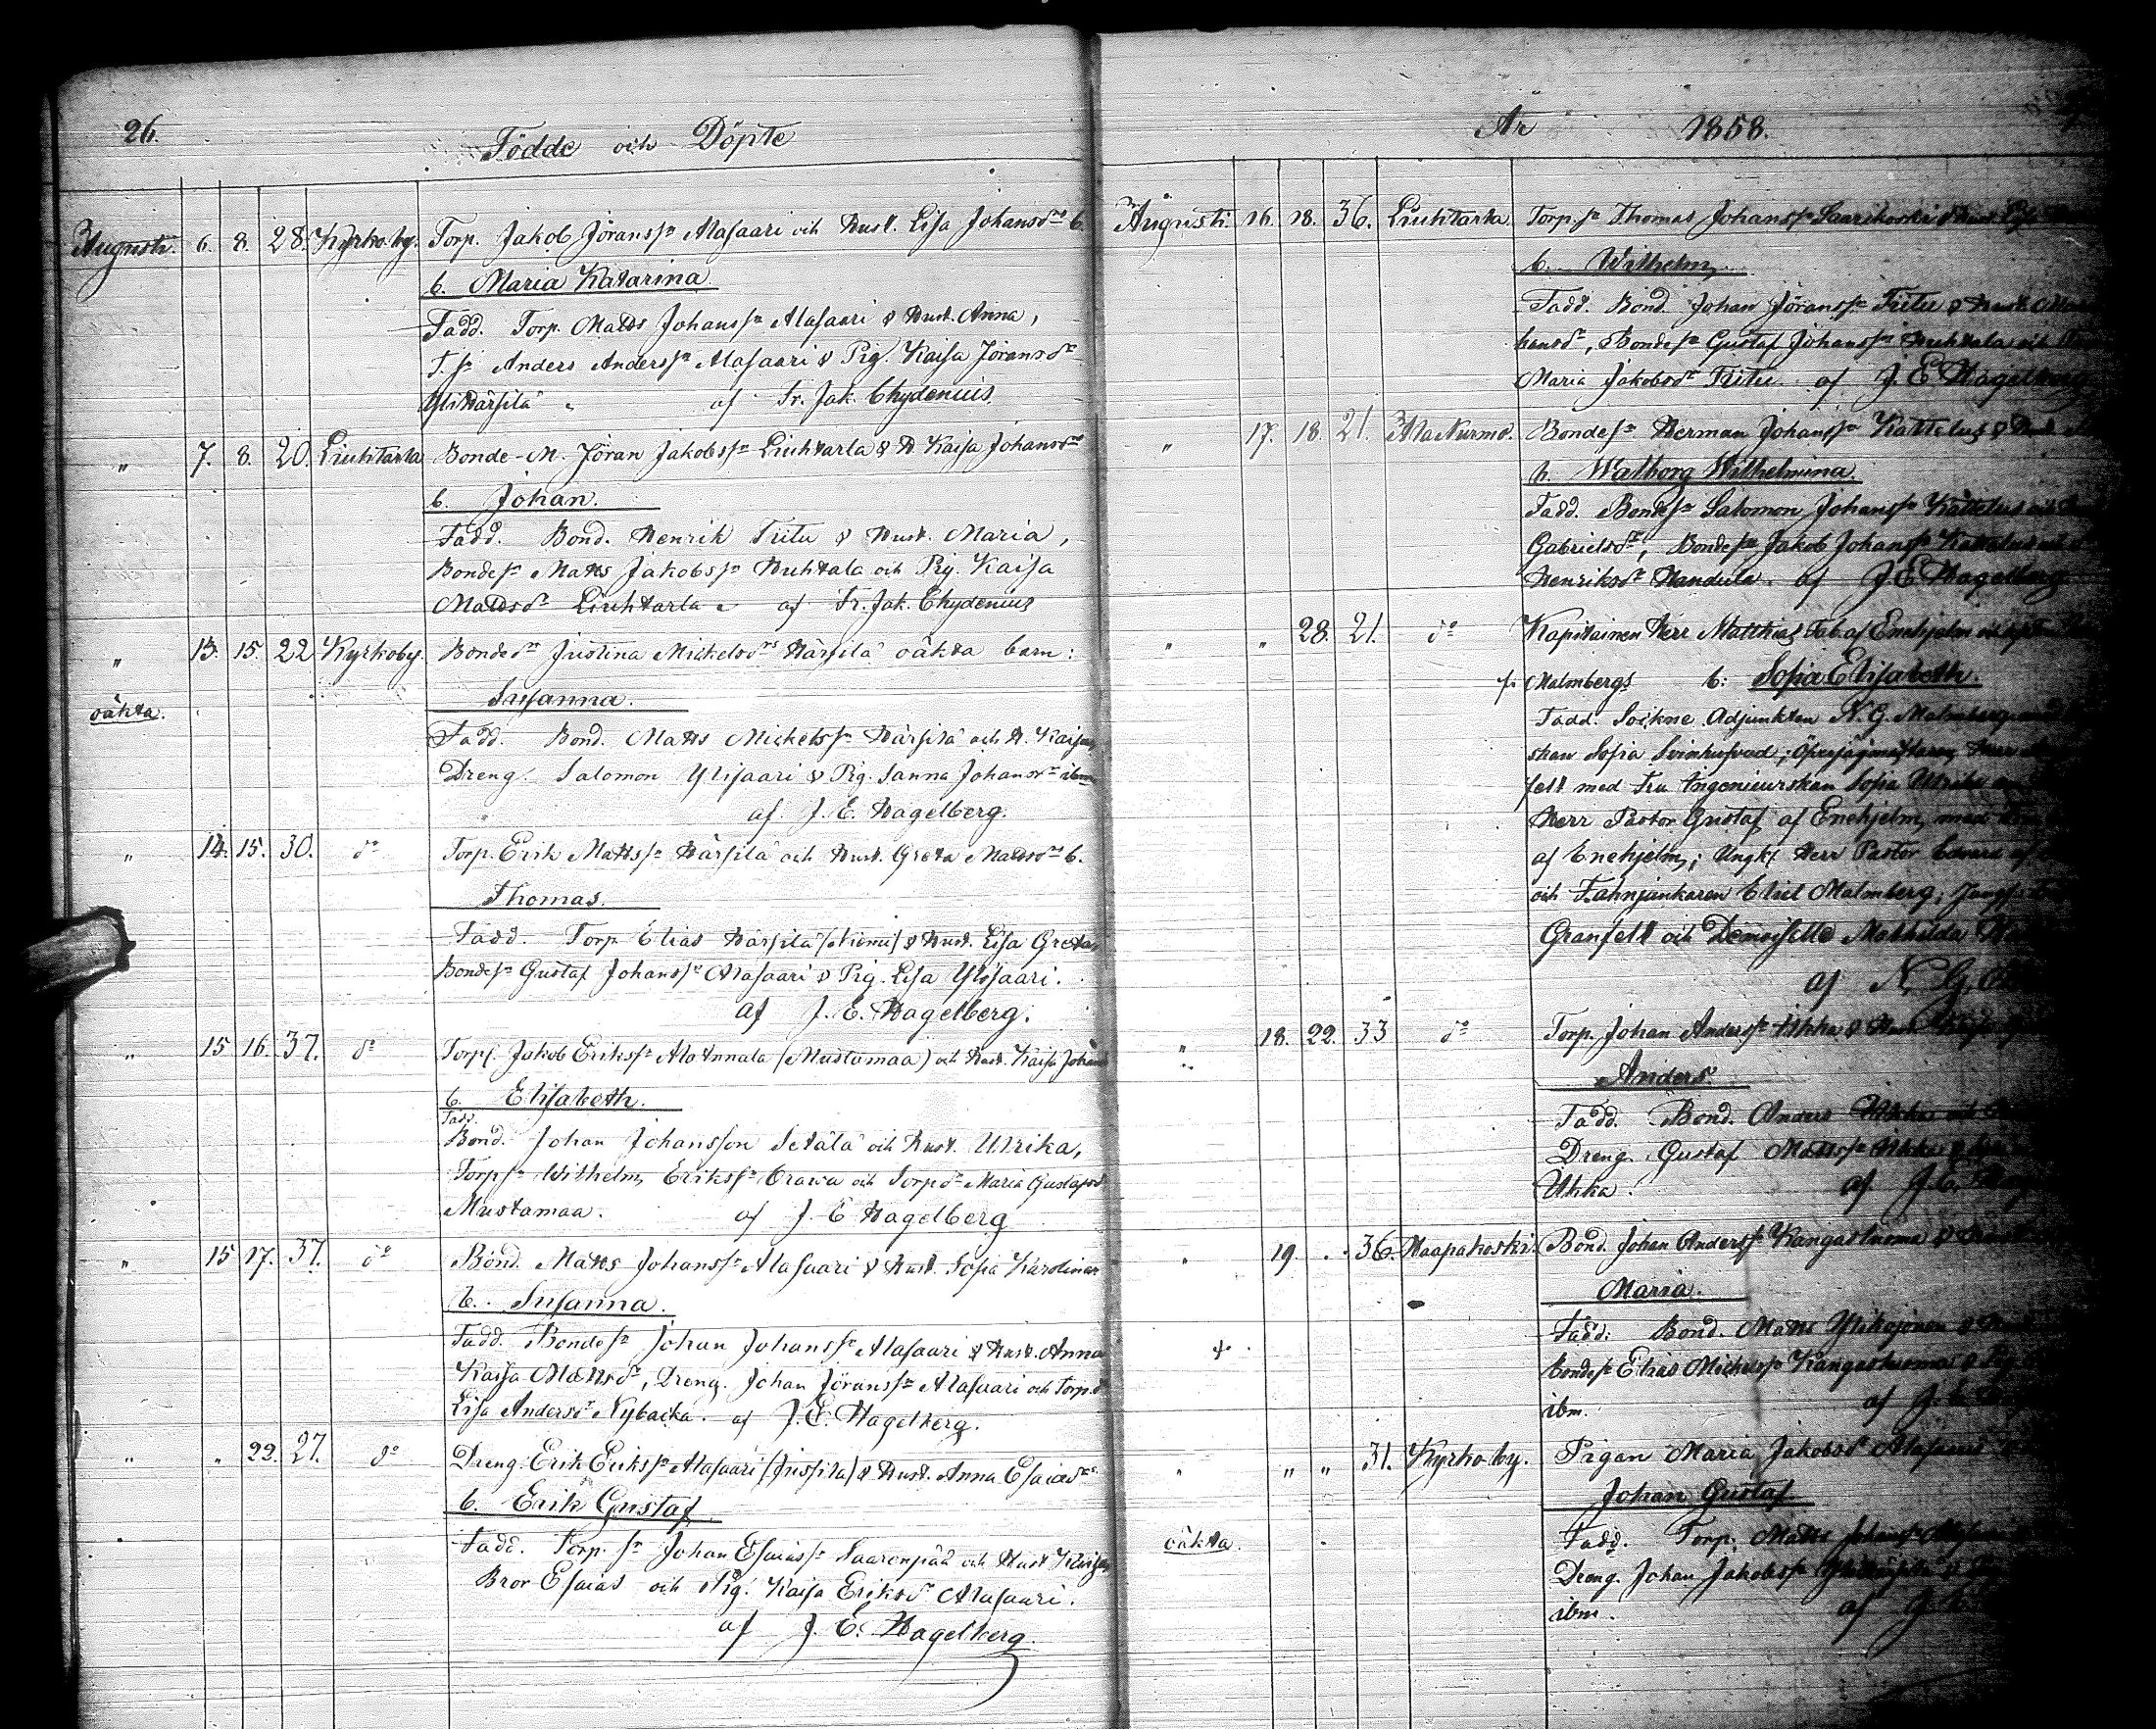 26.
Födde och Döpte
Augusti. 6. 8. 28. Kyrkoby. Torp. Jakob Jöransson Alasaari och Hust. Lisa Johansdrs b.
b. Maria Katarina
Fadd. Torp. Matts Johanss:n Alasaari & Hust. Anna,
T. sn Anders Anderss:n Alasaari & Pig. Kaisa Joransdr
Ylihärsilä af Sr. Jak. Chydenius.
" 7. 8. 20. Liuhtarla Bonde-M. Jöran Jakobss:n Liuhtarla & H. Kaisa Johansdrs
b. Johan.
Fadd. Bond. Henrik Tiitu & Hust. Maria,
Bondes:n Matts Jakobss:n Huhtala och Pig. Kaisa
Mattsdr Liuhtarla af Sr. Jak. Chydenius
" 13. 15. 22 Kyrkoby. Bondedr Justina Mickelsdrs Härsilä oäkta barn:
oäkta. Susanna.
Fadd. Bond. Matts Mickelss:n Härsilä och H. Kaisa
Dreng. Salomon Ylisaari & Pig. Sanna Johansdr ibm
af J. E. Hagelberg.
" 14. 15. 30. do Torp. Erik Mattss:n Härsilä och Hust. Greta Mattsdrs b.
Thomas.
Fadd. Torp Elias Härsilä (Niemi) & Hust. Lisa Greta
Bondes:n Gustaf Johanss:n Alasaari & Pig. Lisa Ylisaari.
af J. E. Hagelberg.
" 15 16. 37. do Torp. Jakob Erikss:n Ala Annala (Mustamaa) och Hust. Kaisa Johans
b. Elisabeth.
Fadd.
Bond. Johan Johansson Setälä och Hust. Ulrika,
Torps:n Wilhelm Erikss:n Orawa och Torpdr Maria Gustafsd
Mustamaa. af J. E Hagelberg
" 15 17. 37. do Bond. Matts Johanss:n Alasaari & Hust. Sofia Karolinas
b. Susanna.
Fadd. Bondes:n Johan Johanss:n Alasaari & Hust. Anna
Kaisa Mattsdr, Dreng. Johan Jöranss:n Alasaari och Torp.d
Lisa Andersdr Nybacka. af J. E. Hagelberg.
" " 22. 27. do Dreng. Erik Erikss:n Alasaari (Jussila) & Hust. Anna Esaiaedrs
b. Erik Gustaf
Fadd. Torp. sn Johan Esaiass:n Saarenpää och Hust Kaisa
Bror Esaias och Pig. Kaisa Eriksdr Alasaari.
af J. E. Hagelberg.
År 1858.
Augusti. 16. 18. 36. Liuhtarla. Torp.sn Thomas Johanss:n Saarikoski & Hust. Lisa
b. Wilhelm
Fadd. Bond. Johan Jöranss:n Tiitu & Hust.
hansdr, Bondes:n Gustaf Johanss:n Huhtala och
Maria Jakobsdr Tiitu. af J. E Hagelberg
" 17. 18. 21. Ala Nurmo. Bondes:n Herman Johanss:n Kattelus & Hust
b. Walborg Wilhelmina.
Fadd. Bondes:n Salomon Johanss:n Kattelus och
Gabrielsdr, Bondes:n Jakob Johanss:n Kattelus och
Henriksdr Handula. af J. E Hagelberg
" " 28. 21. do Kapitainen Herr Matthias Fab. af Enehjelm och
f. Malmbergs b: Sofia Elisabeth.
Fadd. Sockne Adjunkten N. G. Malmberg med
skan Sofia Svinhufvud; Öfverjägmästaren Herr
felt med Fru Ingenieurskan Sofia Ulrika
Herr Pastor Gustaf af Enehjelm med
af Enehjelm; Ungk. Herr Pastor Edvard af
och Fahnjunkaren Eliel Malmberg, Jungf.
Granfelt och Demoiselle Mathilda
af N. G.
" 18. 22. 33 do Torp. Johan Anderss:n Uhka & Hust
Anders
Fadd. Bond. Anders Uhka och
Dreng. Gustaf Mattss:n Uhka &
Uhka. af J. E.
" 19 36. Haapakoski. Bond. Johan Anderss:n Kangasluoma &
Maria.
Fadd: Bond. Matts Ylikojonen &
Bondes:n Elias Mickelss:n Kangasluoma & Pig
ibm. af J. E.
" " " 31. Kyrkoby. Pigan Maria Jakobsdr Alasaari
Johan Gustaf
oäkta. Fadd. Torp. Matts Johanss:n
Dreng. Johan Jakobss:n Ylihärsilä &
ibm. af J. E.